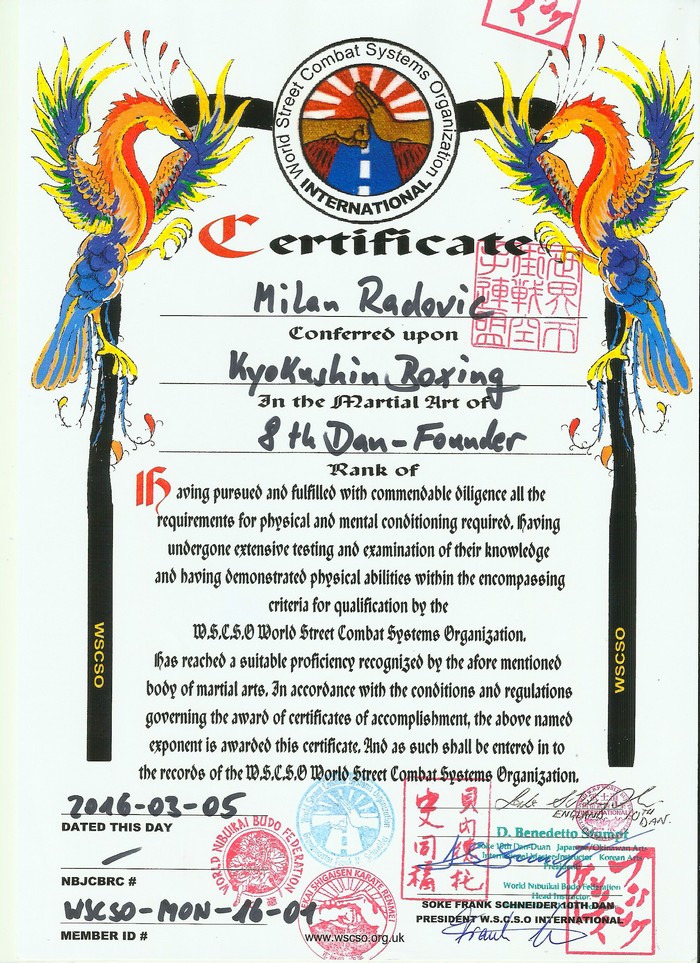 World Street Combat Systems Organization
INTERNATIONAL
Certificate
世界市
街戦空
手連盟
Milan Radovic
Conferred upon
KyoKushin Boxing
In the Martial Art of
8th Dan-Founder
Rank of
Having pursued and fulfilled with commendable diligence all the
requirements for physical and mental conditioning required. Having
undergone extensive testing and examination of their knowledge
and having demonstrated physical abilities within the encompassing
criteria for qualification by the
W.S.C.S.O World Street Combat Systems Organization.
Has reached a suitable proficiency recognized by the afore mentioned
body of martial arts. In accordance with the conditions and regulations
governing the award of certificates of accomplishment, the above named
exponent is awarded this certificate. And as such shall be entered in to
the records of the W.S.C.S.O World Street Combat Systems Organization.
WSCSO
WSCSO
2016-03-05
DATED THIS DAY
NBJCBRC #
WSCSO-MON-16-01
MEMBER ID #
WORLD NIBUIKAI BUDO FEDERATION
SEKAI SHIGAISEN KARATE RENMEI
www.wscso.org.uk
ENGLAND 10TH DAN.
D. Benedetto Stumpf
Soke 10th Dan-Duan Japanese/Okinawan Arts
International Master Instructor Korean Arts
President
World Nibuikai Budo Federation
Head Instructor
SOKE FRANK SCHNEIDER 10TH DAN
PRESIDENT W.S.C.S.O INTERNATIONAL